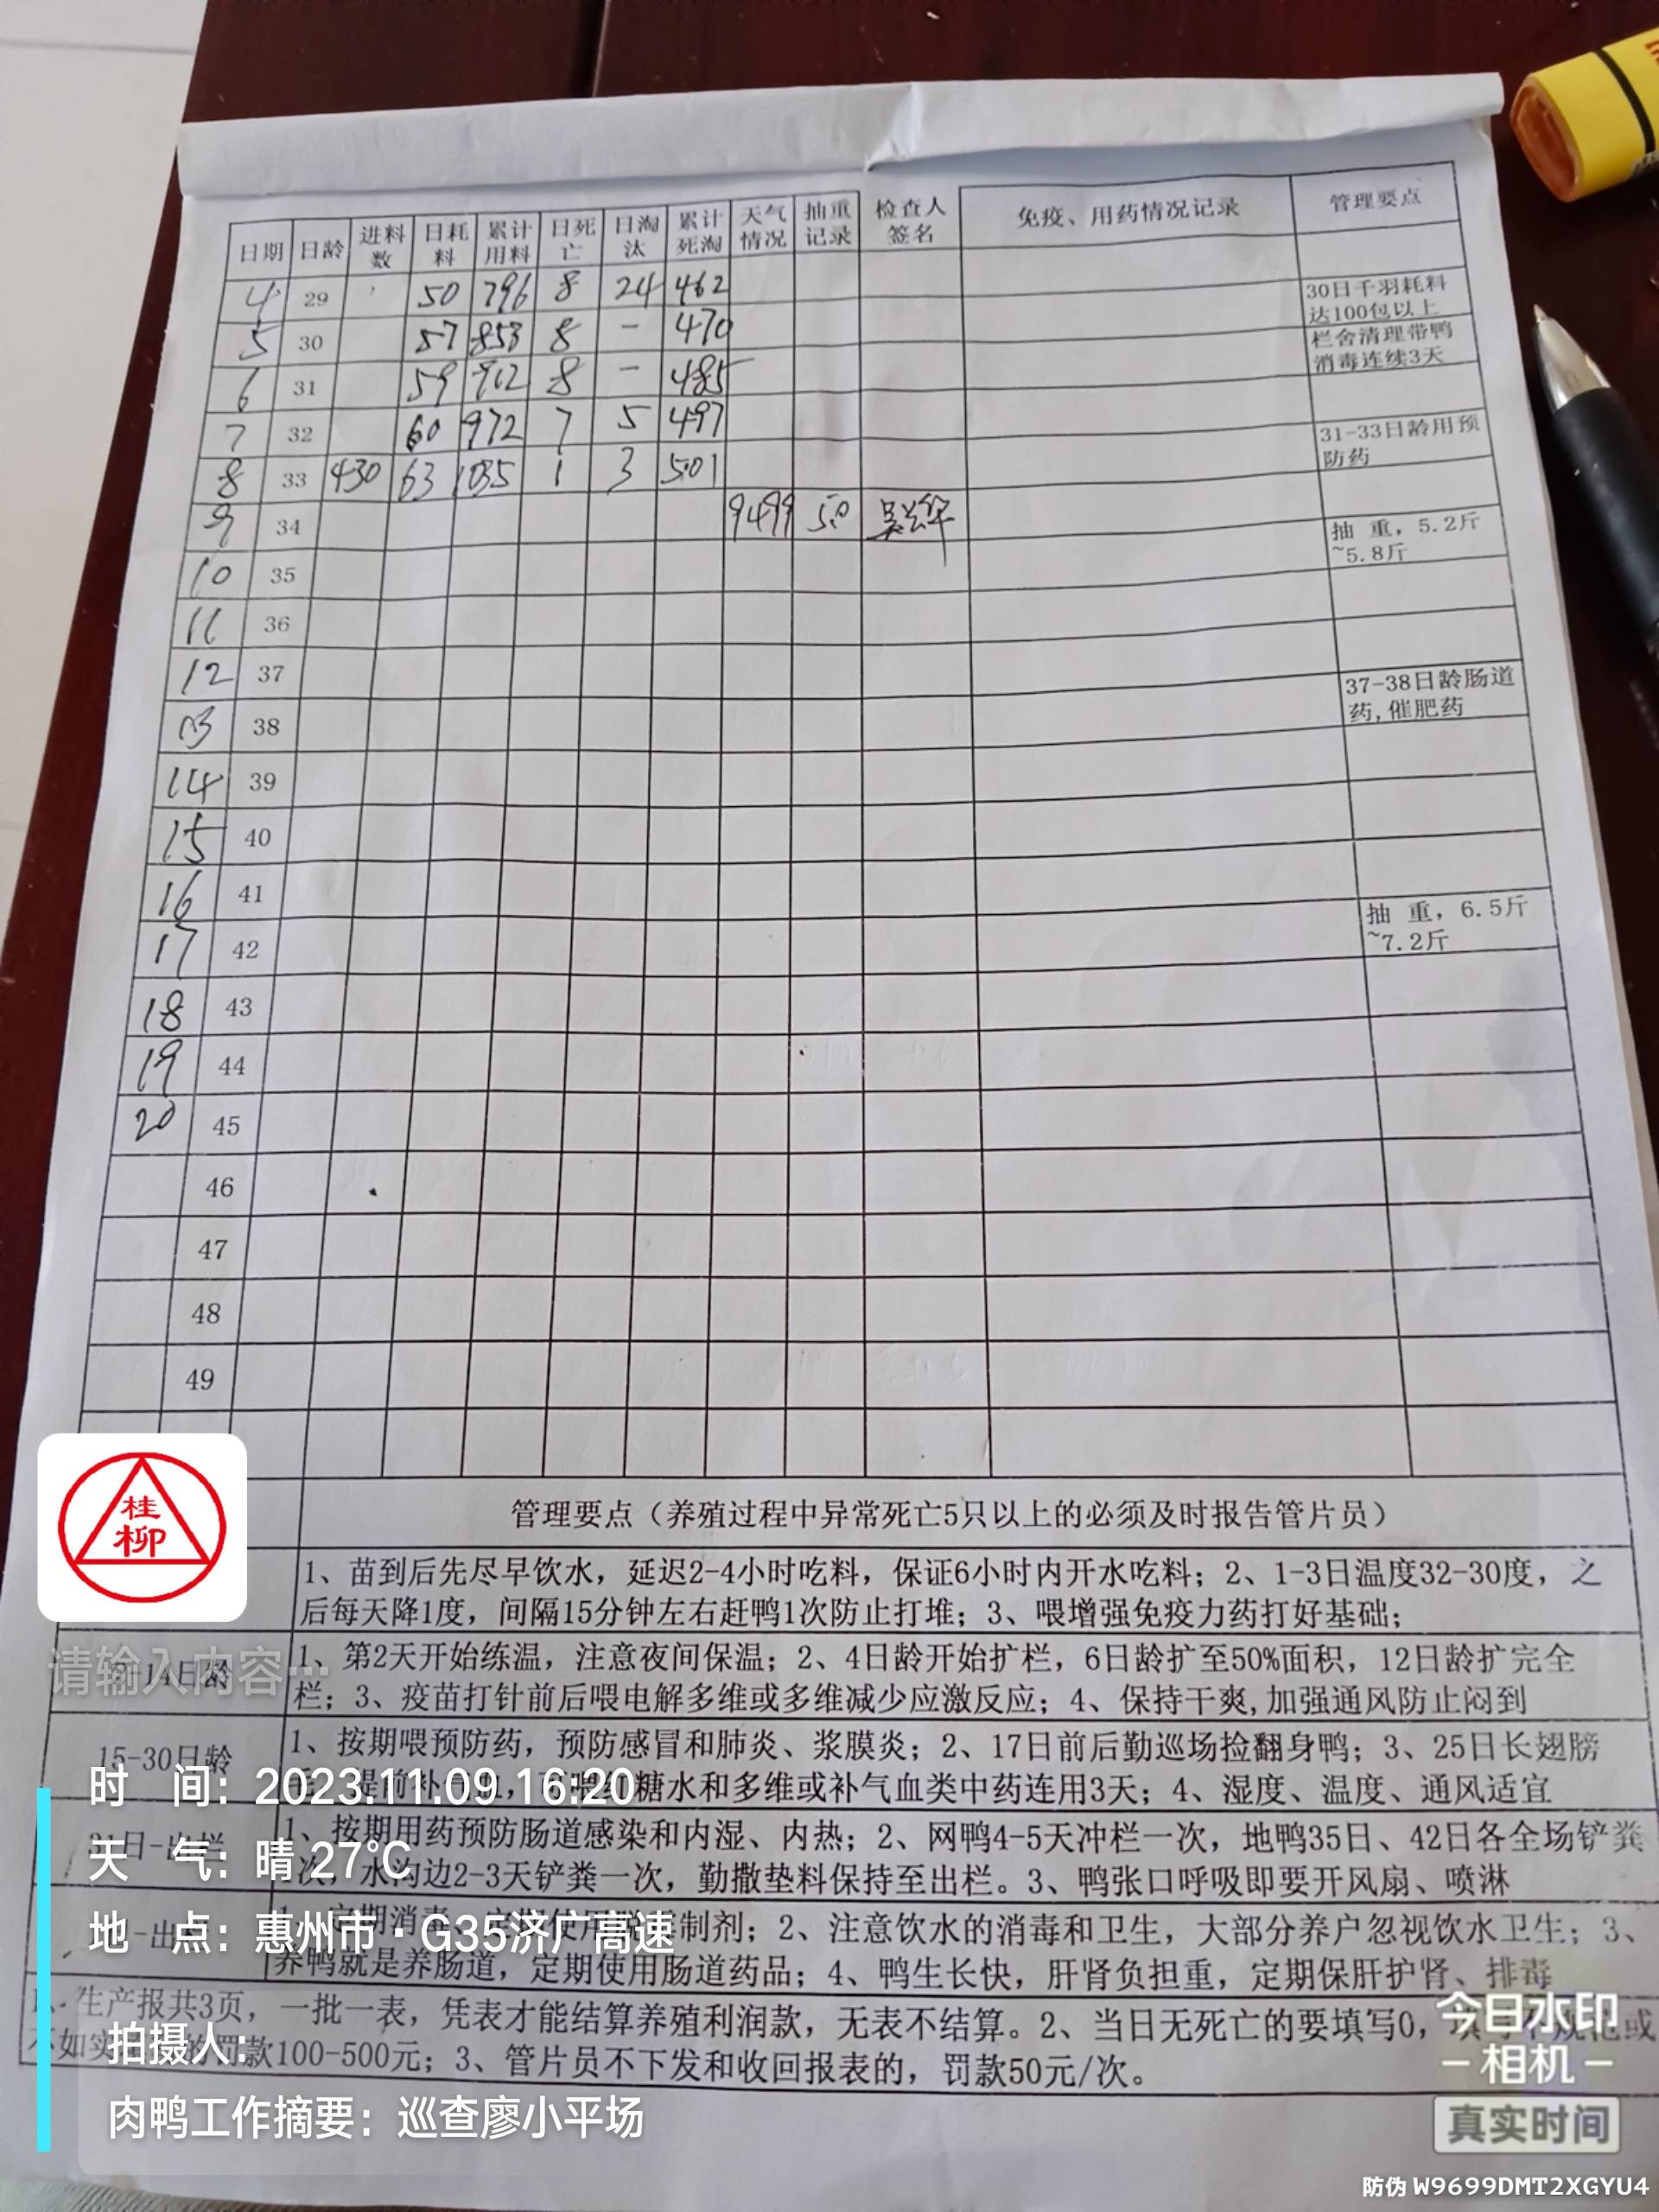 日期 日龄 进料数 日耗料 累计用料 日死亡 日淘汰 累计死淘 天气情况 抽重记录 检查人签名 免疫、用药情况记录 管理要点
4 29 50 796 8 24 462 30日千羽耗料达100包以上
5 30 57 853 8 - 470 栏舍清理带鸭消毒连续3天
6 31 59 912 8 - 485
7 32 60 972 7 5 497 31-33日龄用预防药
8 33 430 63 1035 1 3 501
9 34 9499 5.0 抽 重，5.2斤~5.8斤
10 35
11 36
12 37 37-38日龄肠道药,催肥药
13 38
14 39
15 40
16 41
17 42 抽 重，6.5斤~7.2斤
18 43
19 44
20 45
46
47
48
49
管理要点（养殖过程中异常死亡5只以上的必须及时报告管片员）
1、苗到后先尽早饮水，延迟2-4小时吃料，保证6小时内开水吃料；2、1-3日温度32-30度，之
后每天降1度，间隔15分钟左右赶鸭1次防止打堆；3、喂增强免疫力药打好基础；
14日龄 1、第2天开始练温，注意夜间保温；2、4日龄开始扩栏，6日龄扩至50%面积，12日龄扩完全
栏；3、疫苗打针前后喂电解多维或多维减少应激反应；4、保持干爽,加强通风防止闷到
15-30日龄 1、按期喂预防药，预防感冒和肺炎、浆膜炎；2、17日前后勤巡场捡翻身鸭；3、25日长翅膀
糖水和多维或补气血类中药连用3天；4、湿度、温度、通风适宜
31日-出栏 1、按期用药预防肠道感染和内湿、内热；2、网鸭4-5天冲栏一次，地鸭35日、42日各全场铲粪
次，水沟边2-3天铲粪一次，勤撒垫料保持至出栏。3、鸭张口呼吸即要开风扇、喷淋
定期消毒 制剂；2、注意饮水的消毒和卫生，大部分养户忽视饮水卫生；3、
养鸭就是养肠道，定期使用肠道药品；4、鸭生长快，肝肾负担重，定期保肝护肾、排毒
生产报共3页，一批一表，凭表才能结算养殖利润款，无表不结算。2、当日无死亡的要填写0，
罚款100-500元；3、管片员不下发和收回报表的，罚款50元/次。
桂柳
请输入内容…
时 间：2023.11.09 16:20
天 气：晴 27℃
地 点：惠州市·G35济广高速
拍摄人：
肉鸭工作摘要：巡查廖小平场
今日水印
-相机-
真实时间
防伪 W9699DMT2XGYU4